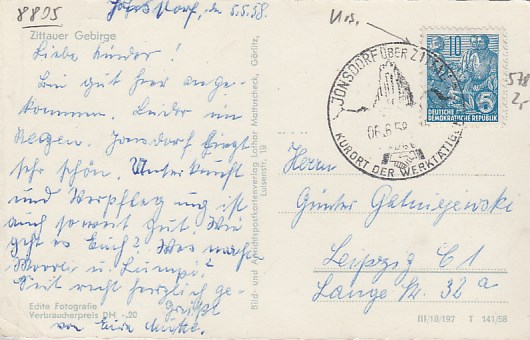 8805
Jonsdorf, den 5.5.58.
Zittauer Gebirge
Liebe Kinder!
Bin gut hier ange-
kommen. Leider im
Regen. Jonsdorf liegt
sehr schön. Unterkunft
und Verpflegung ist
auch soweit gut. Wie
geht es Euch? Was macht
u. Lumpi?
Seid recht herzlich ge-
grüßt
von Eure Mutti.
Echte Fotografie
Verbraucherpreis DM -.20
Bild- und Ansichtspostkartenverlag Lothar Mattuscheck, Görlitz,
Luisenstr. 19
JONSDORF ÜBER ZITTAU
06.6.58
KURORT DER WERKTÄTIGEN
10
5
DEUTSCHE
DEMOKRATISCHE REPUBLIK
578
2,-
Herrn
Günter
Leipzig C 1
Lange Str. 32a
III/18/197 T 141/58